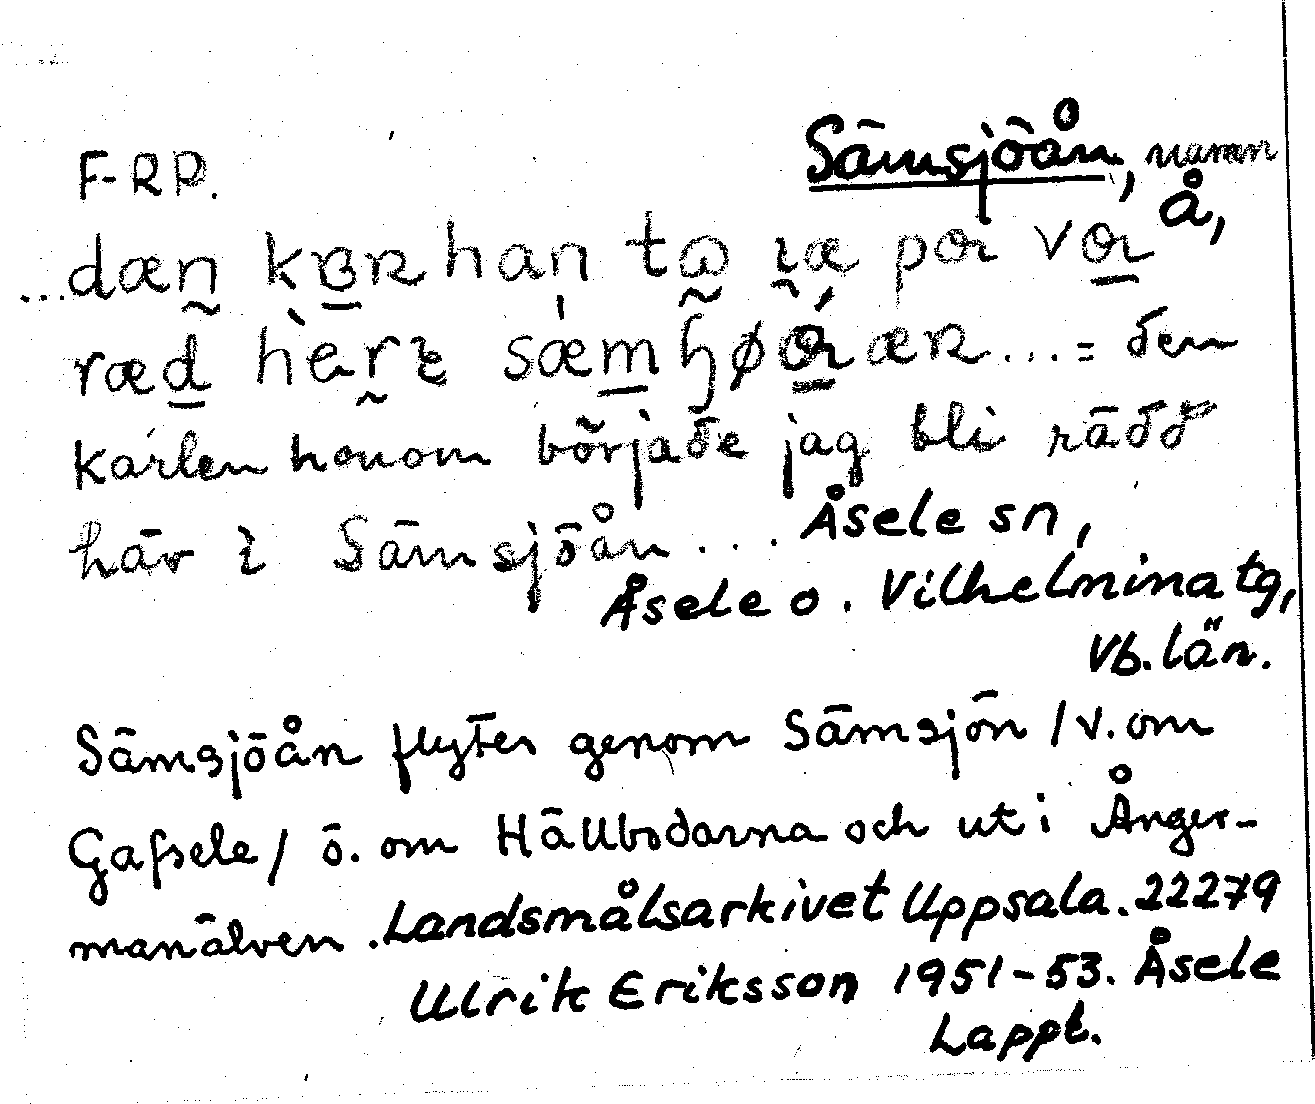 F-RP.
Sämsjöån, namn
å,
...dæn kɐʀ han
ræd
... = den
karlen honom började jag bli rädd
här i Sämsjöån... Åsele sn,
Åsele o. Vilhelmina tg,
Vb. län.
Sämsjöån flyter genom Sämsjön / v. om
Gafsele / ö. om Hällbodarna och ut i Ånger-
manälven. Landsmålsarkivet Uppsala. 22279
Ulrik Eriksson 1951-53. Åsele
Lappt.